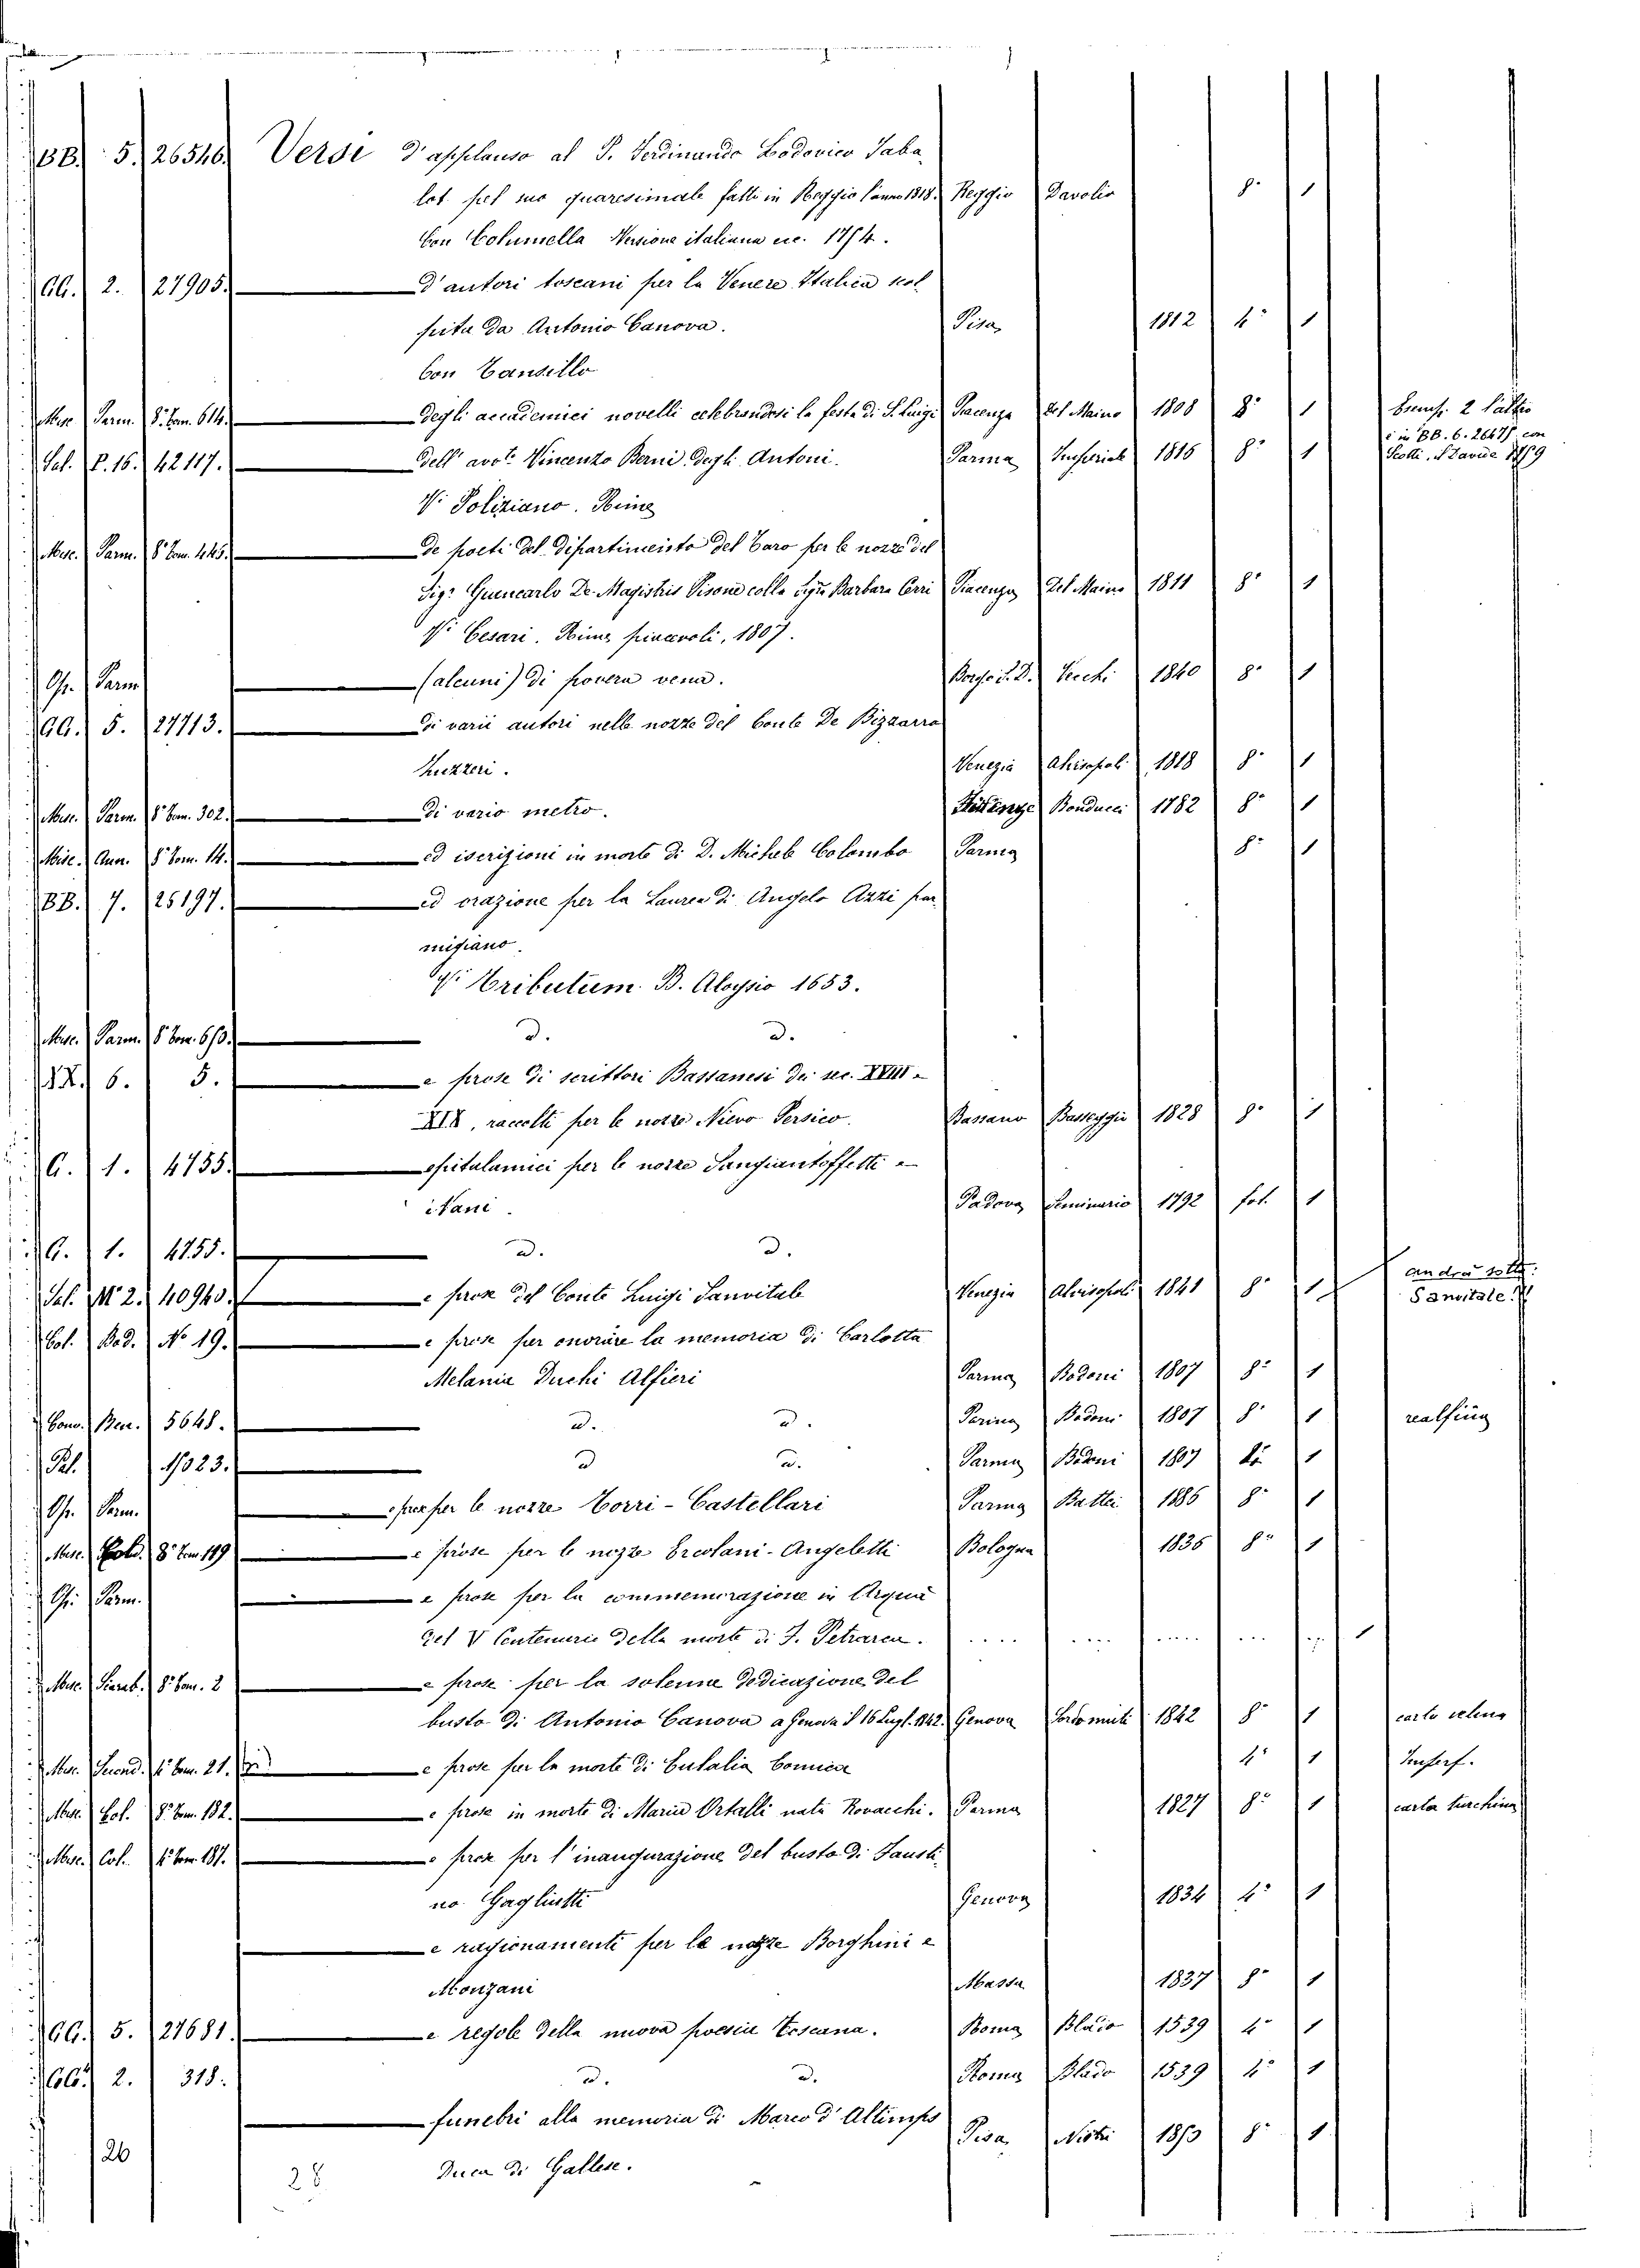 BB. 5. 26546. Versi d'applauso al P. Ferdinando Lodovico Taba-
lot pel suo quaresimale fatto in Reggio l'anno 1818. Reggio Davolio 8° 1
Con Columella Versione italiana ecc. 1794.
GG. 2. 27905. — D'autori toscani per la Venere Italica scol-
pita da Antonio Canova. Pisa 1812 4° 1
Con Tansillo
Misc. Parm. 8° Tom. 614. — degli accademici novelli celebrandosi la festa di S. Luigi Piacenza Del Maino 1808 8° 1
Sal. P. 16. 42117. — dell' avv.to Vincenzo Berni degli Antoni. Parma Imperiale 1816 8° 1
i in BB. 6. 26475 con
V. Poliziano. Rime
Misc. Parm. 8° Tom. 445. — de poeti del dipartimento del Taro per le nozze del
Sig. Giancarlo De-Magistris Pisone colla Sig.a Barbara Cerri Piacenza Del Maino 1811 8° 1
V. Cesari. Rime piacevoli, 1807.
Op. Parm. — (alcuni) di povera vena. Borgo S. D. Vecchi 1840 8° 1
GG. 5. 27713. — di varii autori nelle nozze del Conte De Bizzarro
Venezia Alvisopoli 1818 8° 1
Misc. Parm. 8° Tom. 302. — di vario metro. Bonducci 1782 8° 1
Misc. Ann. 8° Tom. 14. — ed iscrizioni in morte di D. Michele Colombo Parma 8° 1
BB. 7. 25197. — ed orazione per la Laurea di Angelo Azzi par-
migiano.
V. Tributum B. Aloysio 1653.
Misc. Parm. 8° Tom. 670. — d. d.
6. 5. — e prose di scrittori Bassanesi dei sec. XVIII-
XIX, raccolti per le nozze Nievo Persico. Bassano Baseggio 1828 8° 1
G. 1. 4755. — epitalamici per le nozze Sangiantoffetti e
Padova Seminario 1792 fol. 1
G. 1. 4755. — d. d.
Sal. M. 2. 40940. — e prose del Conte Luigi Sanvitale Venezia Alvisopoli 1841 8° 1 andrà sotto:
Sanvitale.
Col. Bod. N° 19. — e prose per onorare la memoria di Carlotta
Melania Duchi Alfieri Parma Bodoni 1807 8° 1
5648. — d. d. Parma Bodoni 1807 8° 1
Pal. 11023. — d d. Parma Bodoni 1807 1
Op. Parm. — e prose per le nozze Torri-Castellari Parma Battei 1886 8° 1
Misc. 8° Tom 119 — e prose per le nozze Ercolani-Angeletti Bologna 1836 8° 1
Op. Parm. — e prose per la commemorazione in Arquà
del V Centenario della morte di F. Petrarca. ..... .... ..... .... 1
Misc. Scarab. 8° Tom. 2 — e prose per la solenne dedicazione del
busto di Antonio Canova a Genova il 16 Lugl. 1842. Genova Sordomuti 1842 8° 1 carta velina
Misc. 4° Tom. 21. — e prose per la morte di Eutalia Comica 4° 1 Imperf.
Misc. Col. 8° Tom. 182. — e prose in morte di Maria Ortalli nata Rovacchi. Parma 1827 8° 1 carta turchina
Misc. Col. 4° Tom. 187. — e prose per l'inaugurazione del busto di Fausti-
no Gagliuffi Genova 1834 4° 1
— e ragionamenti per le nozze Borghini e
Monzani Massa 1837 8° 1
GG. 5. 27681. — e regole della nuova poesia toscana. Roma Blado 1539 4° 1
GG. 2. 318. — d. d. Roma Blado 1539 4° 1
— funebri alla memoria di Marco d'Altemps
Duca di Gallese. Pisa Nistri 1873 8° 1
26
28